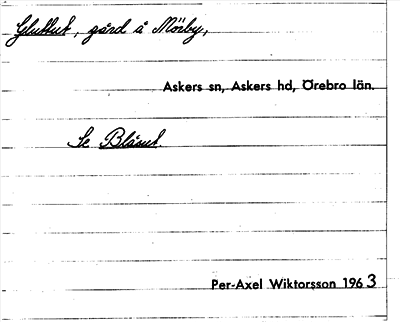 Gluttut, gård å Mörby,
Askers sn, Askers hd, Örebro län.
Se Blåsut
Per-Axel Wiktorsson 1963